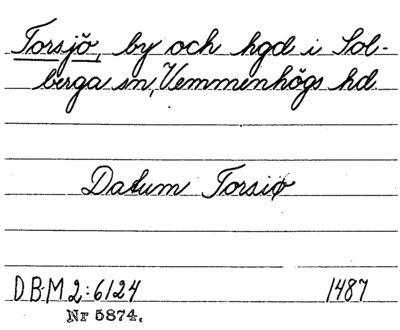 Torsjö, by och hgd i Sol-
berga sn, Vemmenhögs hd.
Datum Torsiø
DBM 2:6124 1487
Nr 5874.